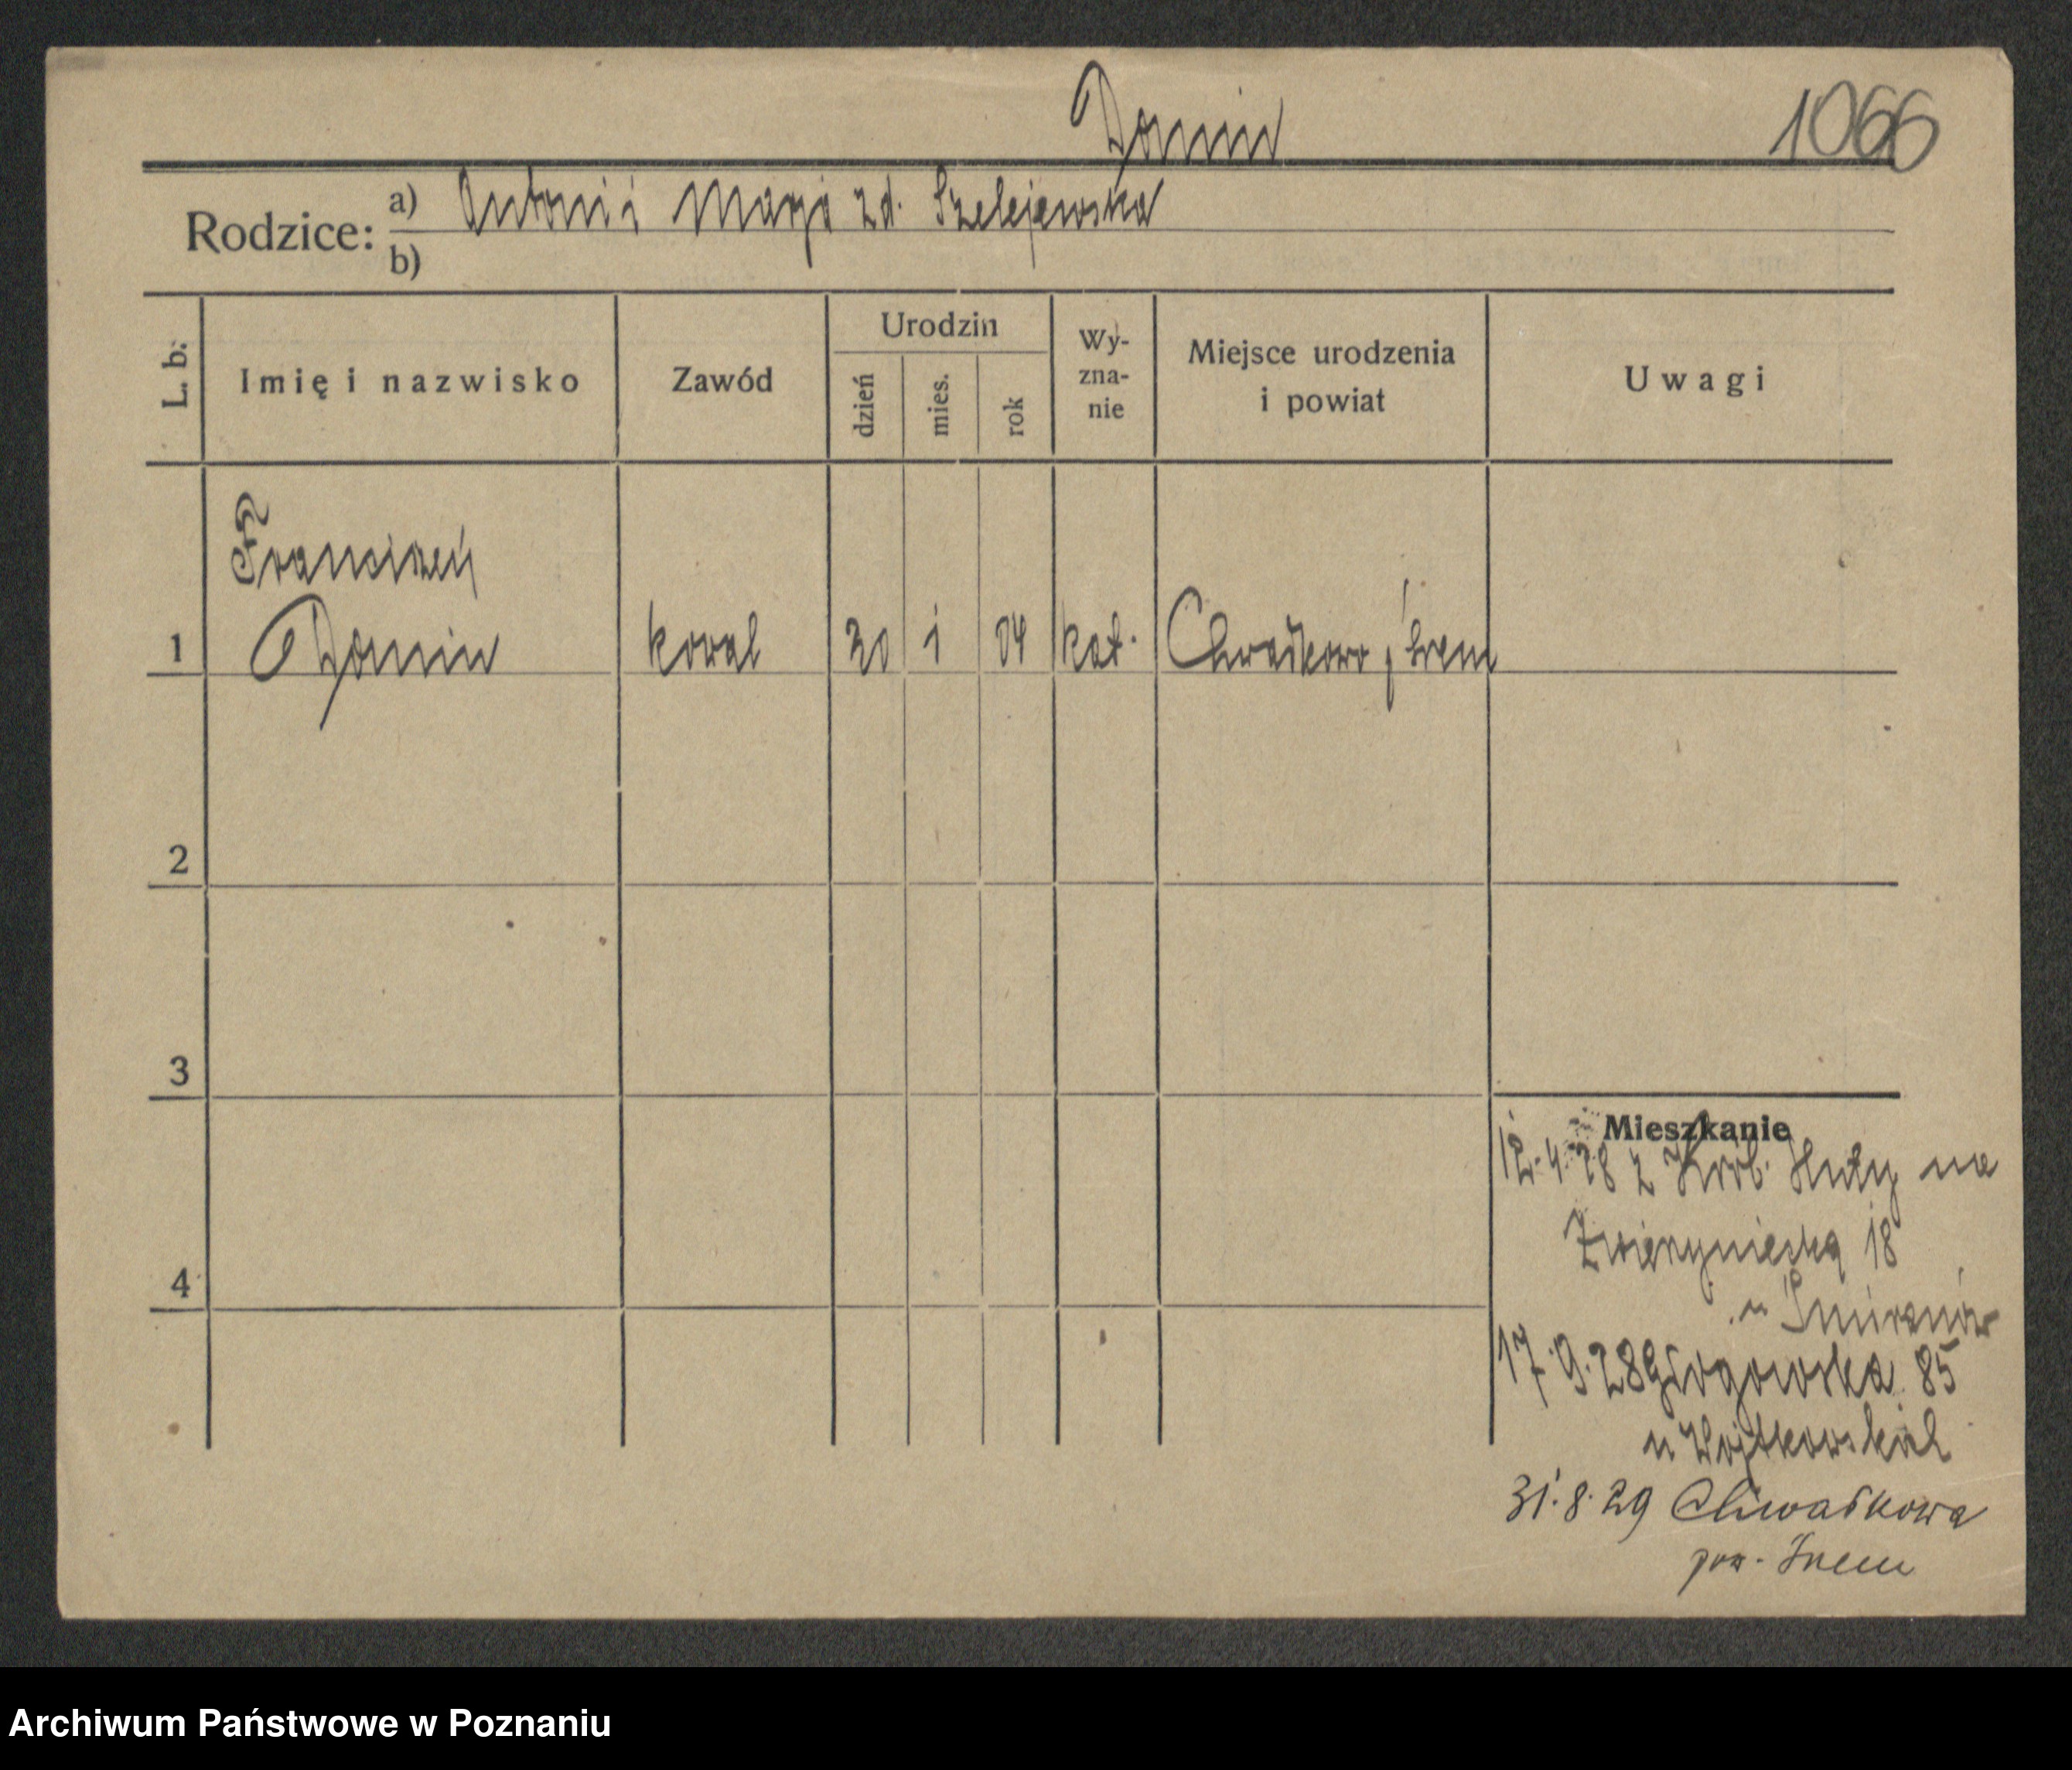 Domin
1066
Rodzice: a) Antoni i Marja zd. Szelejewska
b)
L. b.
Imię i nazwisko
Zawód
Urodzin
dzień
mies.
rok
Wy-
zna-
nie
Miejsce urodzenia
i powiat
Uwagi
Franciszek
1 Domin kowal 30 1 04 kat. Chwałkowo, Śrem
2
3
4
Mieszkanie
12.4.28 z Król. Huty na
Zwierzyniecką 18
u
17.9.28 Głogowska 85
u Wojtkowskich
31.8.29 Chwałkowo
pow. Śrem
Archiwum Państwowe w Poznaniu